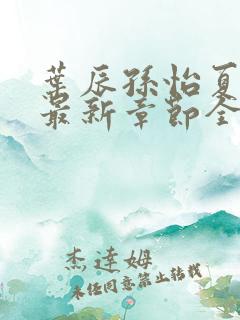 叶辰孙怡夏
最新章节全
杰达姆
未经同意禁止转载